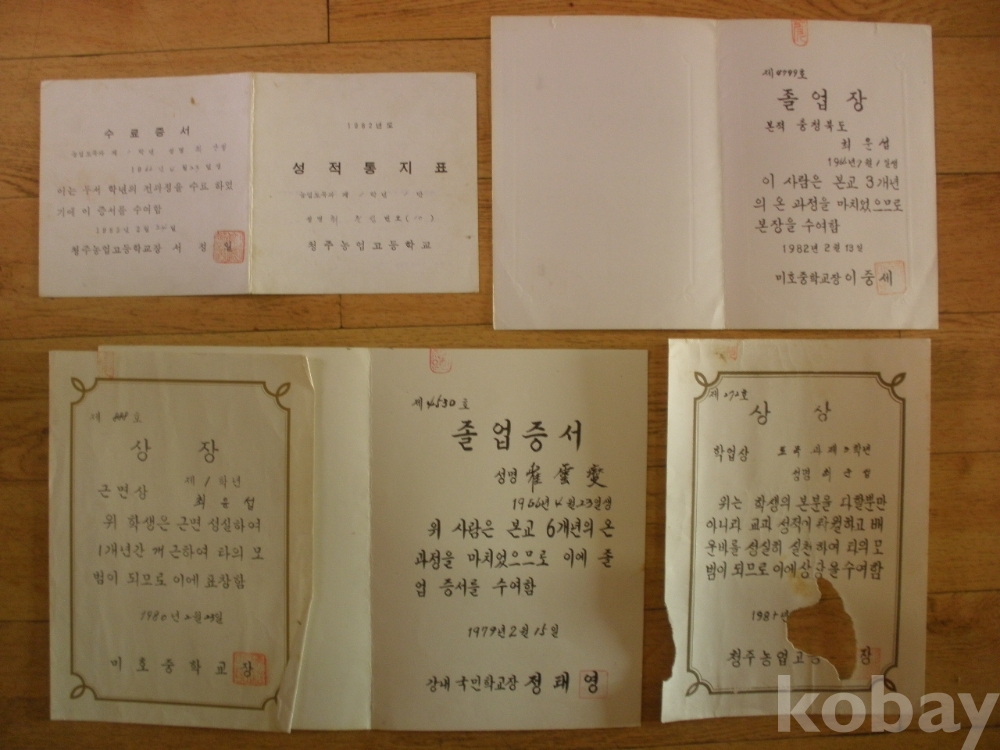 수료증서
이는 우씨 학년의 전과정을 수료 하였
기에 이 증서를 수여함
청주농업고등학교장 서 정 일
성적통지표
청주농업고등학교
졸업장
본적 충청북도
최운섭
이 사람은 본교 3개년
의 온 과정을 마치었으므로
본장을 수여함
1982년 2월 13일
미호중학교장 이중세
제 호
상장
제 1 학년
근면상
최운섭
위 학생은 근면 성실하여
1개년간 개근하여 타의 모
범이 되므로 이에 표창함
1980년 2월 23일
미호중학교장
제4530호
졸업증서
성명 崔雲燮
1966년 4월 23일생
위 사람은 본교 6개년의 온
과정을 마치었으므로 이에 졸
업 증서를 수여함
1979년 2월 15일
강내국민학교장 정태영
제 272호
상상
학업상
성명 최운섭
위는 학생의 본분을 다할뿐만
아니라 교과 성적가 탁월하고 배
운바를 성실히 실천하여 타의 모
범이 되므로 이에 상장을 수여함
청주농업고 장
kobay